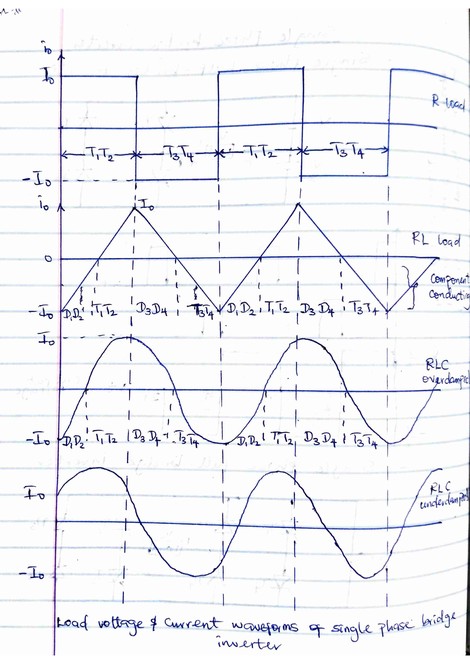 i₀
I₀
R Load
T₁T₂ T₃T₄ T₁T₂ T₃T₄
-I₀
i₀ I₀
RL Load
0
Component
conducting
-I₀ D₁D₂ T₁T₂ D₃D₄ T₃T₄ D₁D₂ T₁T₂ D₃D₄ T₃T₄
I₀
RLC
overdamped
-I₀ D₁D₂ T₁T₂ D₃D₄ T₃T₄ D₁D₂ T₁T₂ D₃D₄ T₃T₄
I₀
RLC
underdamped
-I₀
Load voltage & Current waveforms of single phase bridge
inverter